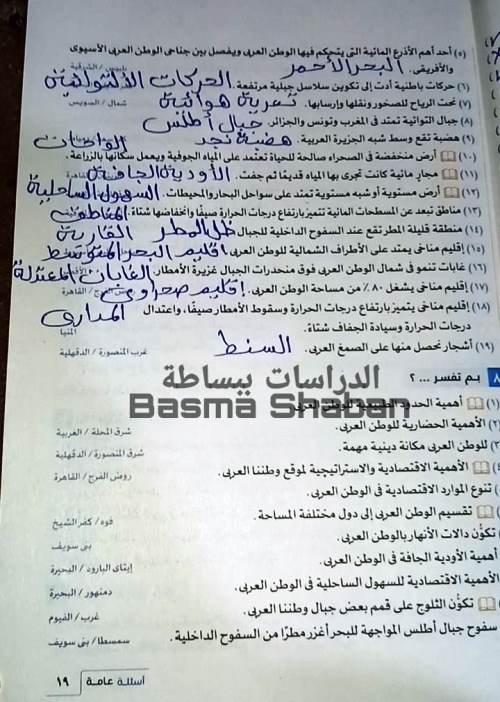 (٥) أحد أهم الأذرع المائية التى يتحكم فيها الوطن العربى ويفصل بين جناحى الوطن العربى الآسيوى
والأفريقى. البحر الأحمر نابيس / الشرقية
(٦) حركات باطنية أدت إلى تكوين سلاسل جبلية مرتفعة. الحركات الالتوائية
(٧) نحت الرياح للصخور ونقلها وإرسابها. تعرية هوائية شمال / السويس
(٨) جبال التوائية تمتد فى المغرب وتونس والجزائر. جبال أطلس
(٩) هضبة تقع وسط شبه الجزيرة العربية. هضبة نجد الواحات
(١٠) أرض منخفضة فى الصحراء صالحة للحياة تعتمد على المياه الجوفية ويعمل سكانها بالزراعة.
(١١) مجارٍ مائية كانت تجرى بها المياه قديمًا ثم جفت. الأودية الجافة
(١٢) أرض مستوية أو شبه مستوية تمتد على سواحل البحار والمحيطات. السهول الساحلية
(١٣) مناطق تبعد عن المسطحات المائية تتميز بارتفاع درجات الحرارة صيفًا وانخفاضها شتاءً. المناطق القارية
(١٤) منطقة قليلة المطر تقع عند السفوح الداخلية للجبال. ظل المطر
(١٥) إقليم مناخى يمتد على الأطراف الشمالية للوطن العربى. اقليم البحر المتوسط
(١٦) غابات تنمو فى شمال الوطن العربى فوق منحدرات الجبال غزيرة الأمطار. الغابات المعتدلة
(١٧) إقليم مناخى يشغل ٨٠٪ من مساحة الوطن العربى. إقليم صحراوى الفرج / القاهرة
(١٨) إقليم مناخى يتميز بارتفاع درجات الحرارة وسقوط الأمطار صيفًا، واعتدال المدارى
درجات الحرارة وسيادة الجفاف شتاءً. المنيا
(١٩) أشجار نحصل منها على الصمغ العربى. السنط غرب المنصورة / الدقهلية
الدراسات ببساطة
Basma Shaban
٨ بم تفسر ... ؟
(١) أهمية الحدود الطبيعية للوطن العربى.
(٢) الأهمية الحضارية للوطن العربى. شرق المحلة / الغربية
(٣) للوطن العربى مكانة دينية مهمة. شرق المنصورة / الدقهلية
الأهمية الاقتصادية والاستراتيجية لموقع وطننا العربى. روض الفرج / القاهرة
تنوع الموارد الاقتصادية فى الوطن العربى.
تقسيم الوطن العربى إلى دول مختلفة المساحة. فوه / كفر الشيخ
تكوُّن دالات الأنهار بالوطن العربى. بنى سويف
أهمية الأودية الجافة فى الوطن العربى. إيتاى البارود / البحيرة
الأهمية الاقتصادية للسهول الساحلية فى الوطن العربى. دمنهور / البحيرة
تكوُّن الثلوج على قمم بعض جبال وطننا العربى. غرب / الفيوم
سفوح جبال أطلس المواجهة للبحر أغزر مطرًا من السفوح الداخلية. سمسطا / بنى سويف
أسئلة عامة ١٩